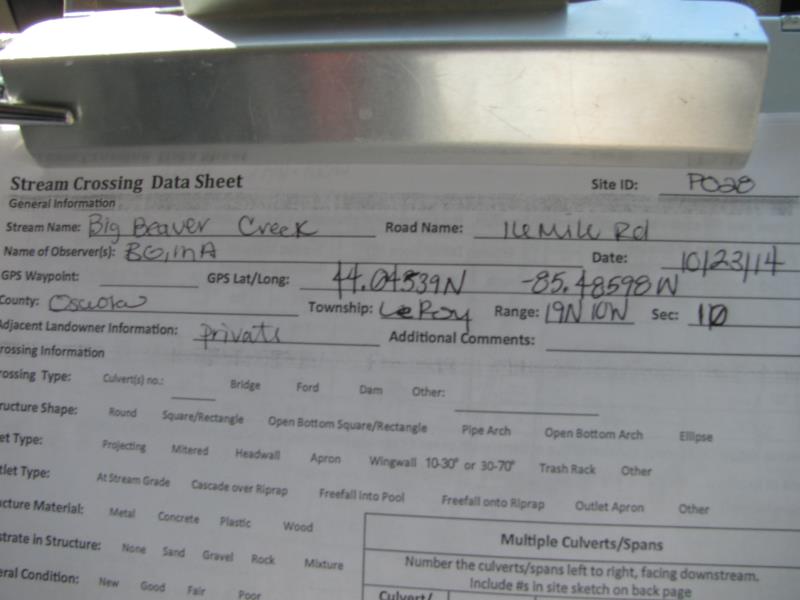 Stream Crossing Data Sheet Site ID: PO28
General Information
Stream Name: Big Beaver Creek Road Name: 16 Mile Rd
Name of Observer(s): BG, MA Date: 10/23/14
GPS Waypoint: GPS Lat/Long: 44.04539N -85.48598W
County: Osceola Township: LeRoy Range: 19N 10W Sec: 10
Adjacent Landowner Information: private Additional Comments:
rossing Information
rossing Type: Culvert(s) no.: Bridge Ford Dam Other:
ructure Shape: Round Square/Rectangle Open Bottom Square/Rectangle Pipe Arch Open Bottom Arch Ellipse
et Type: Projecting Mitered Headwall Apron Wingwall 10-30° or 30-70° Trash Rack Other
tlet Type: At Stream Grade Cascade over Riprap Freefall Into Pool Freefall onto Riprap Outlet Apron Other
ucture Material: Metal Concrete Plastic Wood
strate in Structure: None Sand Gravel Rock Mixture
eral Condition: New Good Fair Poor
Multiple Culverts/Spans
Number the culverts/spans left to right, facing downstream.
Include #s in site sketch on back page
Culvert/